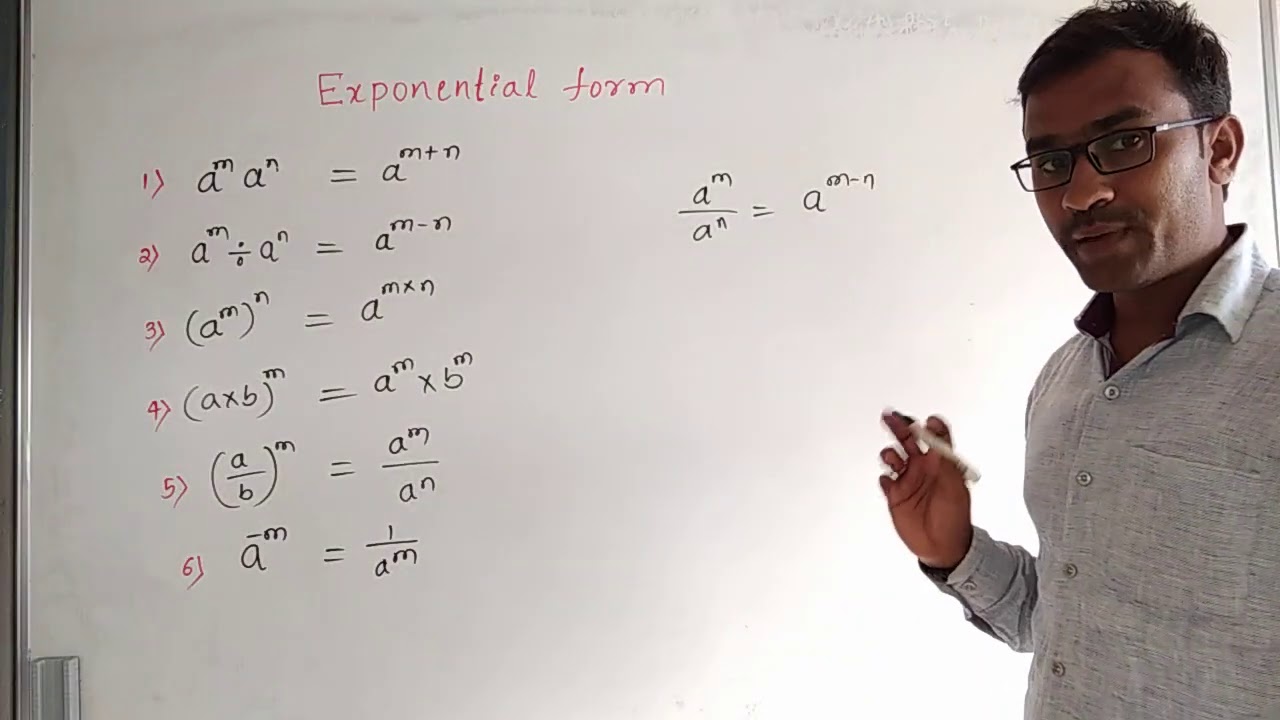 Exponential form
1) a^m a^n = a^{m+n}
2) a^m ÷ a^n = a^{m-n}
3) (a^m)^n = a^{m×n}
4) (a×b)^m = a^m × b^m
5) (a/b)^m = a^m/a^n
6) a^{-m} = 1/a^m
a^m/a^n = a^{m-n}